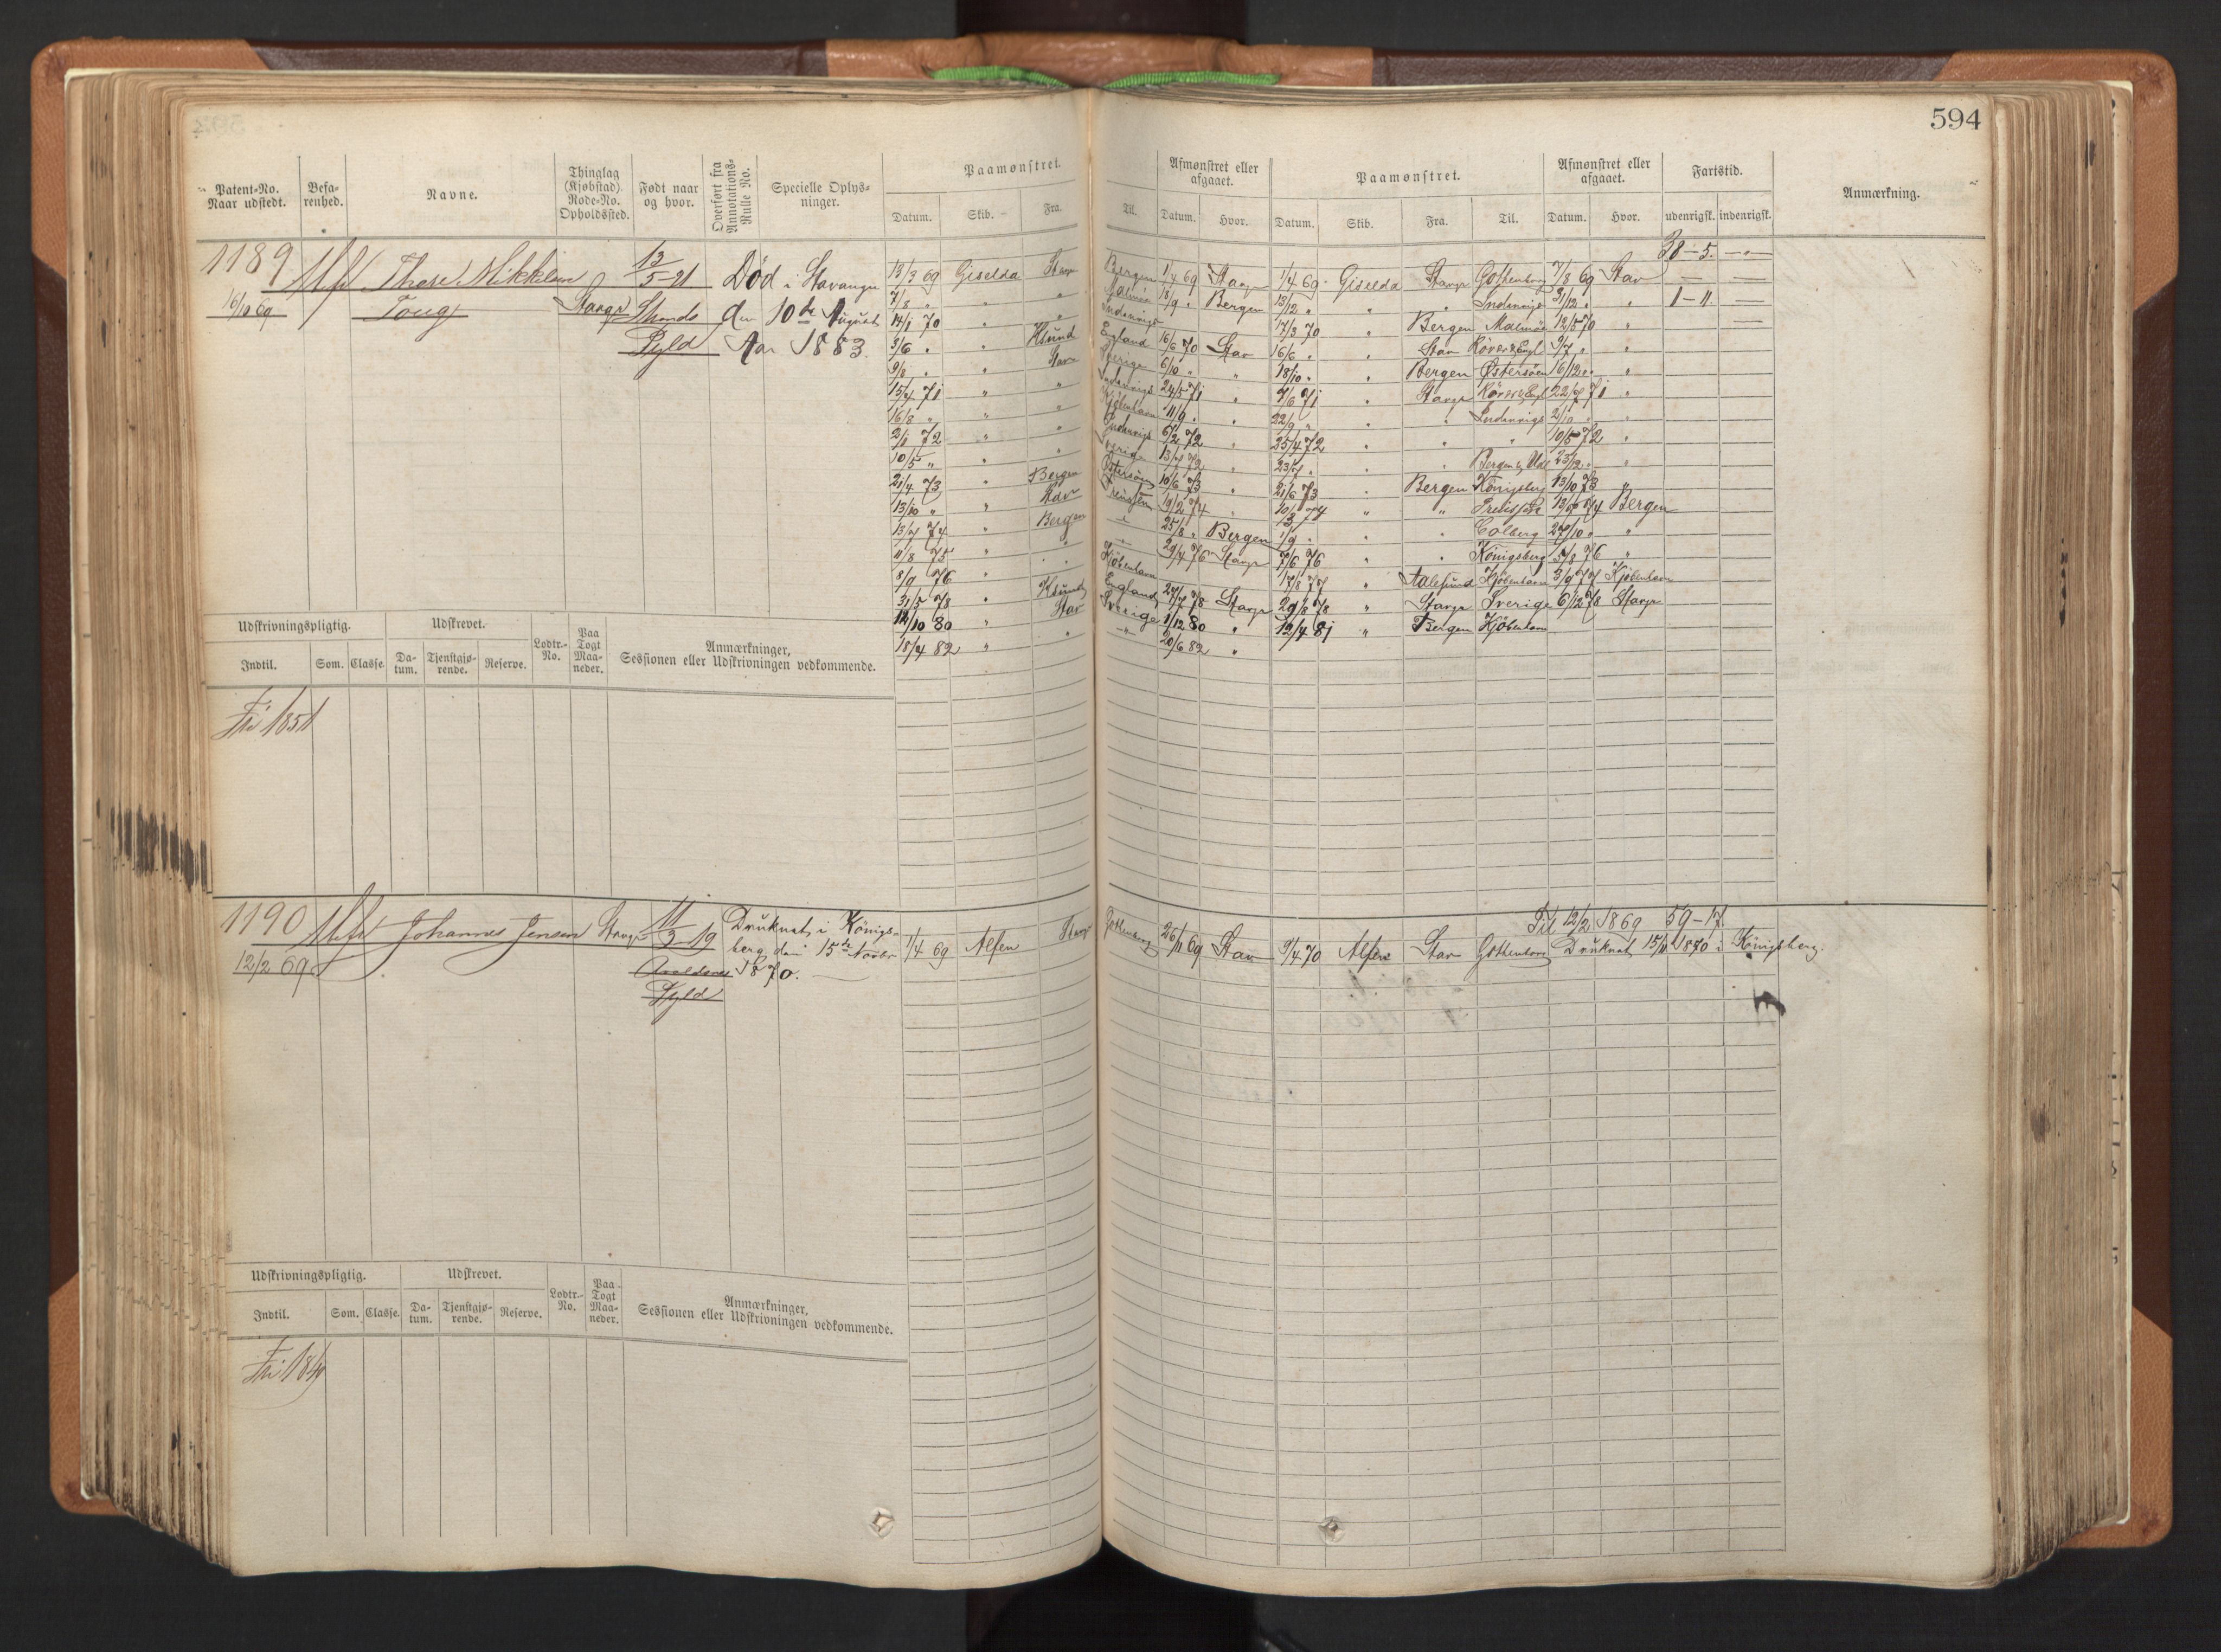 594
Patent-No. Naar udstedt.
Befarenhed.
Navne.
Thinglag (Kjøbstad) Rode-No. Opholdssted.
Født naar og hvor.
Overført fra Annotations-Rulle No.
Specielle Oplysninger.
Paamønstret.
Datum. Skib. Fra. Til.
Afmønstret eller afgaaet.
Datum. Hvor.
Paamønstret.
Datum. Skib. Fra. Til.
Afmønstret eller afgaaet.
Datum. Hvor.
Fartstid.
udenrigsk. indenrigsk.
Anmærkning.
1189
16/10 69
Thore Mikkelsen
Toug
Stavgr
12/5-21
Død i Stavanger
den 10de August
Aar 1883.
38-5.
13/3 69 Giselda Stavgr Bergen 1/4 69 Stavgr 1/4 69 Giselda Stavgr Gothenborg 7/8 69 Stav
7/8 " " " Malmöe 18/9 " Bergen 13/12 " " " Indenrigs 31/12 " " 1-11.
14/1 70 " " Indenrigs 17/3 70 " Bergen Malmöe 12/5 70 "
3/6 " " Hsund England 16/6 70 Stav 16/6 " " Stav 9/7 " "
9/8 " " Stav Sverige 6/10 " " 18/10 " " Bergen Østersöen 16/12 " "
15/4 71 " " Indenrigs 24/5 71 " 7/6 71 " Stavgr 71 "
16/8 " " " Kjöbenhavn 11/9 " " 22/9 " " " Indenrigs 2/10 "
2/1 72 " " Indenrigs 6/2 72 " 25/4 72 " " " 10/5 72 "
10/5 " " " Sverige 13/7 72 23/7 " " " Bergen 23/12 " "
21/4 73 " Bergen Østersöen 10/6 73 " 21/6 73 " Bergen Königsberg 13/10 73 "
13/10 " " Stav Preussen 19/2 74 " 74 " " Preussen 74 Bergen
13/7 74 " Bergen " 25/8 " Bergen 1/9 " " " Colberg 27/10 " "
11/8 75 " " " 29/4 76 Stavgr 7/6 76 " " Königsberg 15/8 76 "
8/9 76 " " Kjöbenhavn 17/8 77 " Aalesund Kjöbenhavn 3/9 77 Kjöbenhavn
31/5 78 " Ksund England 27/7 78 Stavgr 29/8 78 " Stavgr Sverige 6/12 78 Stavgr
12/10 80 " Stav Sverige 1/12 80 " 12/4 81 " Bergen Kjöbenhavn
18/4 82 " " " 20/6 82 "
Udskrivningspligtig.
Indtil. Som. Classe.
Udskrevet.
Datum. Tjenstgjørende. Reserve.
Lodtr.-No.
Paa Togt Maaneder.
Anmærkninger,
Sessionen eller Udskrivningen vedkommende.
Fri 1851
1190
12/2 69
Johannes Jensen Stavgr
11/3-19
Avaldsnes
Druknet i Königsberg den 15de Novbr
1870.
Til 12/2 1869 59-17.
1/4 69 Alfen Stavgr Gothenborg 26/11 69 Stav 9/4 70 Alfen Stav Gothenborg Druknet 15/11 1870 i Königsberg.
Udskrivningspligtig.
Indtil. Som. Classe.
Udskrevet.
Datum. Tjenstgjørende. Reserve.
Lodtr.-No.
Paa Togt Maaneder.
Anmærkninger,
Sessionen eller Udskrivningen vedkommende.
Fri 1849